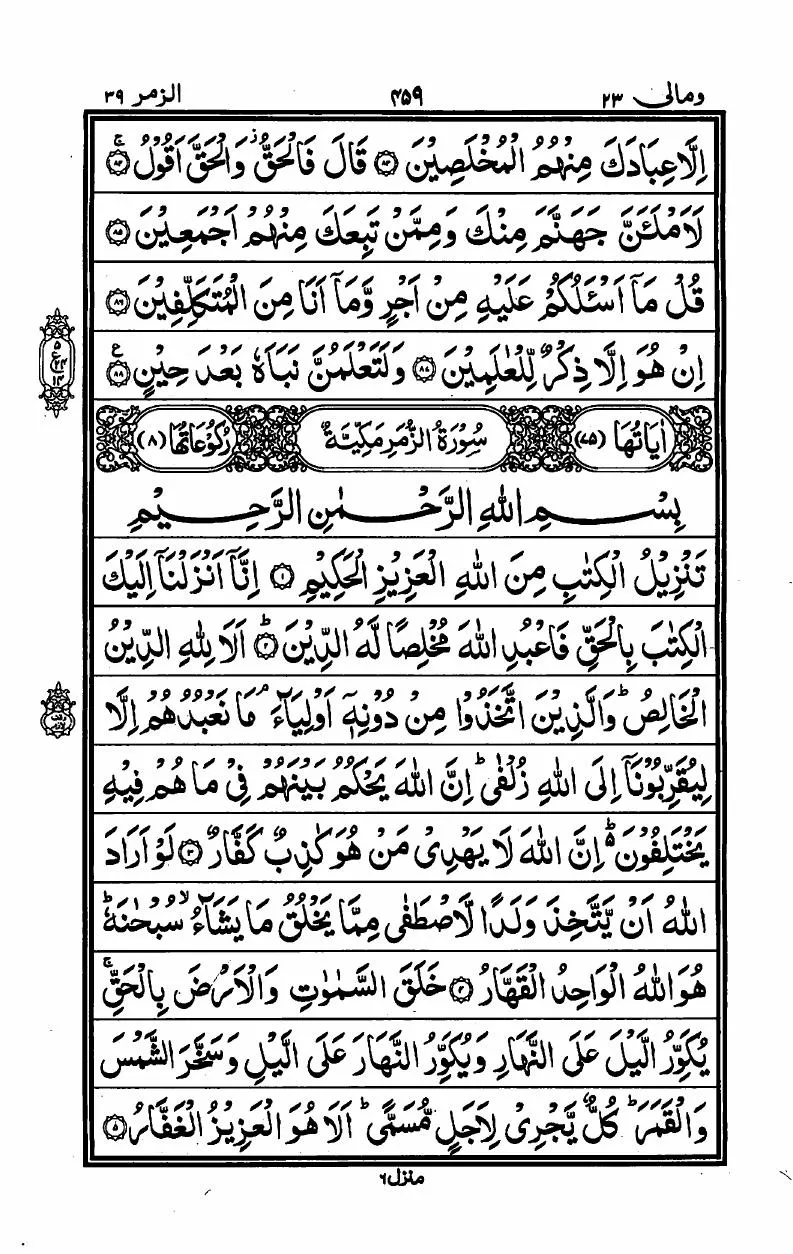 ومالی ۲۳
۴۵۹
الزمر ۳۹
اِلَّا عِبَادَكَ مِنْهُمُ الْمُخْلَصِيْنَ ﴿۸۳﴾ قَالَ فَالْحَقُّ ز وَالْحَقَّ اَقُوْلُ ﴿۸۴﴾ ۚ
لَاَمْلَـَٔنَّ جَهَنَّمَ مِنْكَ وَمِمَّنْ تَبِعَكَ مِنْهُمْ اَجْمَعِيْنَ ﴿۸۵﴾
قُلْ مَاۤ اَسْـَٔلُكُمْ عَلَيْهِ مِنْ اَجْرٍ وَّمَاۤ اَنَا مِنَ الْمُتَكَلِّفِيْنَ ﴿۸۶﴾
اِنْ هُوَ اِلَّا ذِكْرٌ لِّلْعٰلَمِيْنَ ﴿۸۷﴾ وَلَتَعْلَمُنَّ نَبَاَهٗ بَعْدَ حِيْنٍ ﴿۸۸﴾ ع
۵
ع ۲۴
۱۴
اٰيَاتُهَا (۷۵)
سُوْرَةُ الزُّمَرِ مَكِّيَّةٌ
رُكُوْعَاتُهَا (۸)
بِسْمِ اللّٰهِ الرَّحْمٰنِ الرَّحِيْمِ
تَنْزِيْلُ الْكِتٰبِ مِنَ اللّٰهِ الْعَزِيْزِ الْحَكِيْمِ ﴿۱﴾ اِنَّاۤ اَنْزَلْنَاۤ اِلَيْكَ
الْكِتٰبَ بِالْحَقِّ فَاعْبُدِ اللّٰهَ مُخْلِصًا لَّهُ الدِّيْنَ ﴿۲﴾ ؕ اَلَا لِلّٰهِ الدِّيْنُ
الْخَالِصُ ؕ وَالَّذِيْنَ اتَّخَذُوْا مِنْ دُوْنِهٖۤ اَوْلِيَآءَ ۘ مَا نَعْبُدُهُمْ اِلَّا
لِيُقَرِّبُوْنَاۤ اِلَى اللّٰهِ زُلْفٰى ؕ اِنَّ اللّٰهَ يَحْكُمُ بَيْنَهُمْ فِيْ مَا هُمْ فِيْهِ
يَخْتَلِفُوْنَ ؕ اِنَّ اللّٰهَ لَا يَهْدِيْ مَنْ هُوَ كٰذِبٌ كَفَّارٌ ﴿۳﴾ لَوْ اَرَادَ
اللّٰهُ اَنْ يَّتَّخِذَ وَلَدًا لَّاصْطَفٰى مِمَّا يَخْلُقُ مَا يَشَآءُ ۙ سُبْحٰنَهٗ ؕ
هُوَ اللّٰهُ الْوَاحِدُ الْقَهَّارُ ﴿۴﴾ خَلَقَ السَّمٰوٰتِ وَالْاَرْضَ بِالْحَقِّ ۚ
يُكَوِّرُ الَّيْلَ عَلَى النَّهَارِ وَيُكَوِّرُ النَّهَارَ عَلَى الَّيْلِ وَسَخَّرَ الشَّمْسَ
وَالْقَمَرَ ؕ كُلٌّ يَّجْرِيْ لِاَجَلٍ مُّسَمًّى ؕ اَلَا هُوَ الْعَزِيْزُ الْغَفَّارُ ﴿۵﴾
منزل ۶